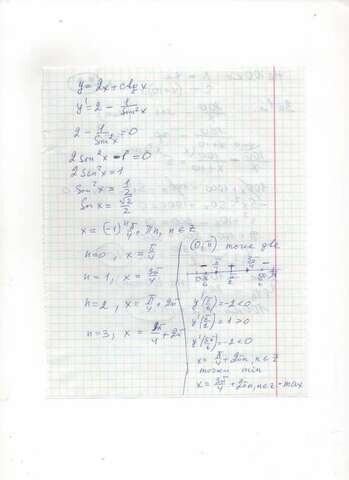 y = 2x + ctg x
y' = 2 - 1/sin²x
2 - 1/sin²x = 0
2 sin²x - 1 = 0
2 sin²x = 1
sin²x = 1/2
sin x = √2/2
x = (-1)ⁿ π/4 + πn, n ∈ z
n=0, x = π/4
n=1, x = 3π/4
n=2, x = π/4 + 2π
n=3; x = + 2π
(0; π) точки две
- + -
y'(π/6) = -2 < 0
y'(π/2) = 1 > 0
y'(5π/6) = -2 < 0
x = π/4 + 2πn, n ∈ z
точки min
x = 3π/4 + 2πn, n ∈ z - max